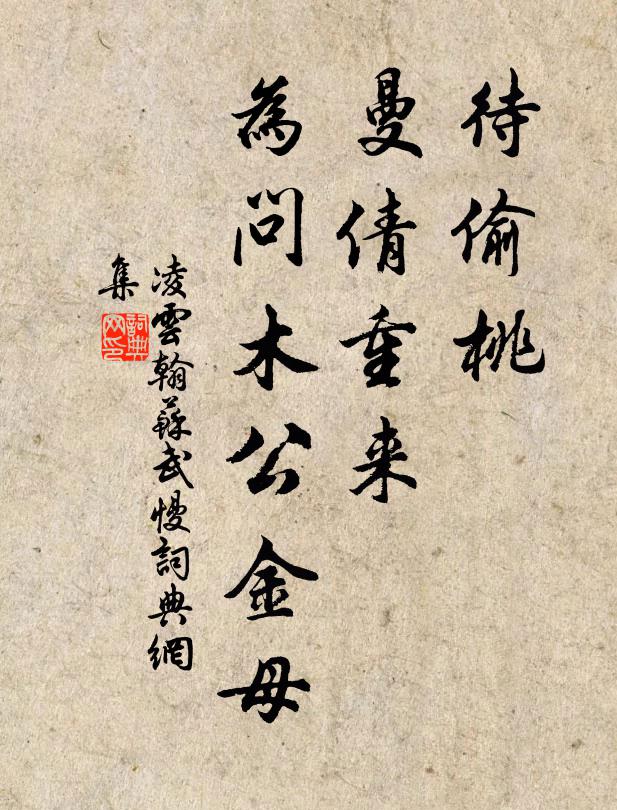 待偷桃
曼倩重来
為問木公金母
凌雲翰蘇武慢詞典網
集
詞典网印